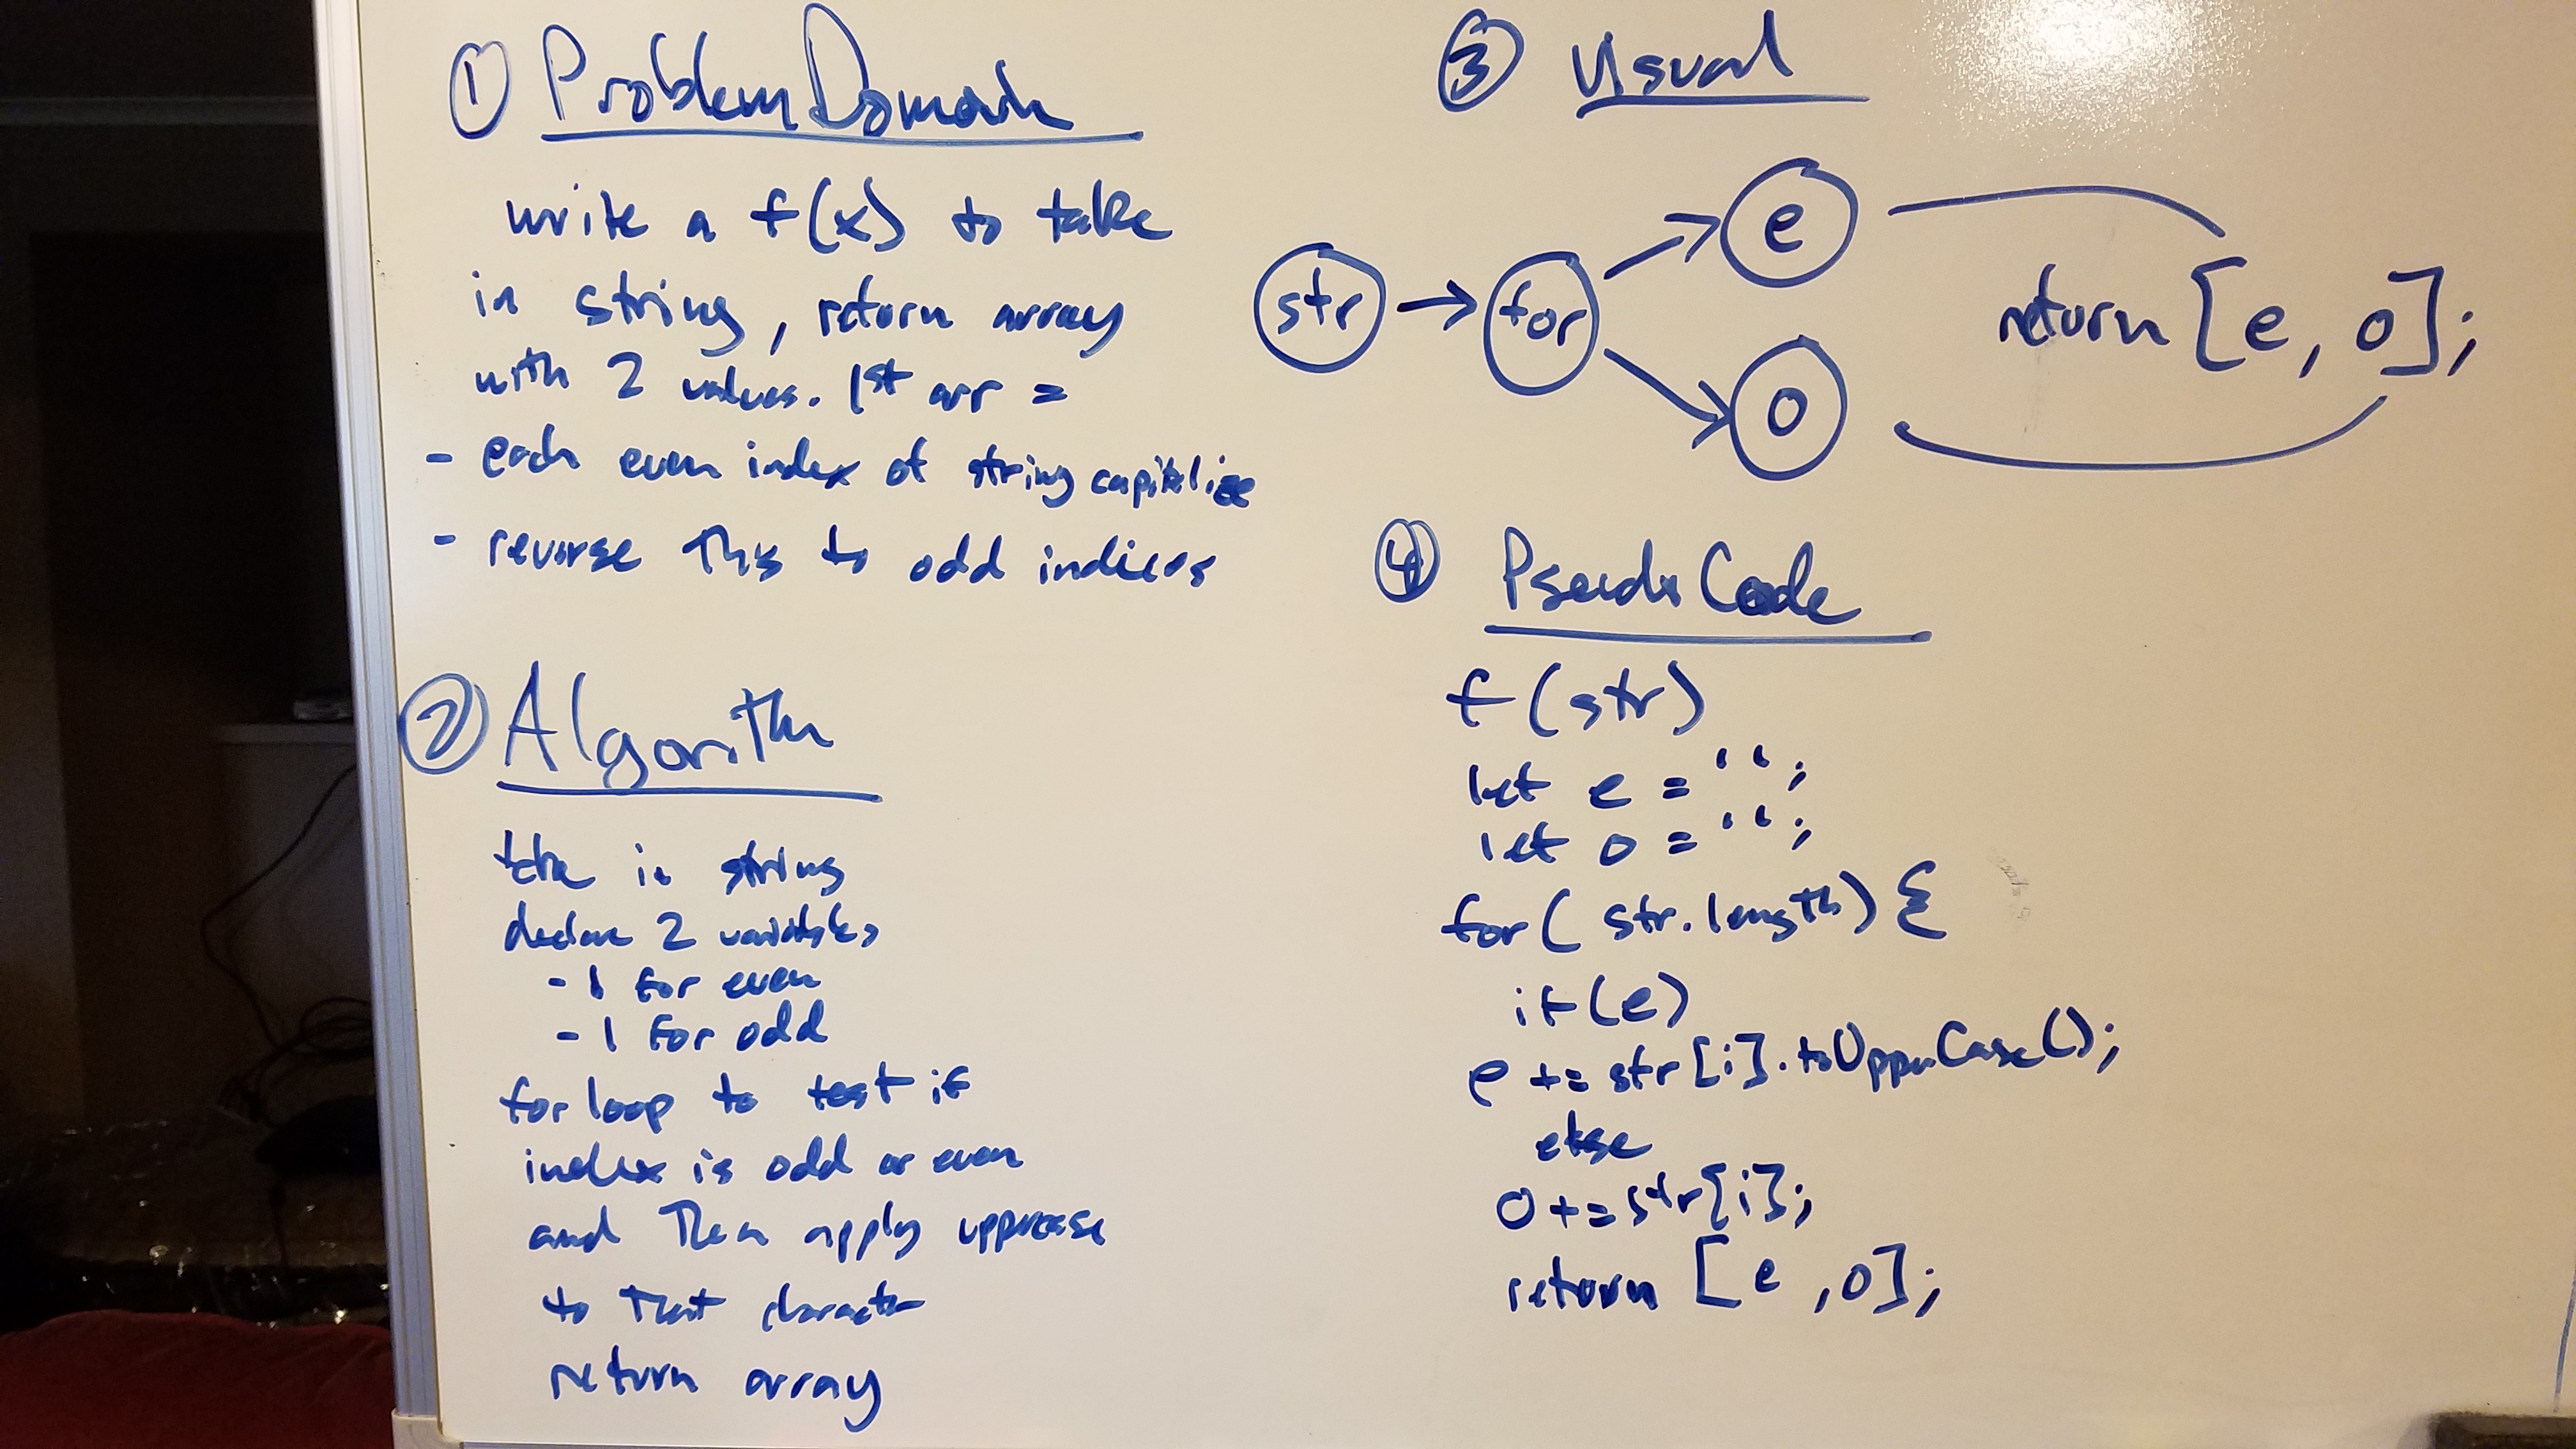 ① Problem Domain
write a f(x) to take
in string, return array
with 2 values. 1st arr =
- each even index of string capitalize
- reverse this to odd indices
② Algorithm
take in string
declare 2 variables
- 1 for even
- 1 for odd
for loop to test if
index is odd or even
and then apply uppercase
to that character
return array
③ Visual
str → for
e
o
return [e, o];
④ Pseudo Code
f(str)
let e = '';
let o = '';
for( str.length) {
if(e)
e += str[i].toUpperCase();
else
o += str[i];
return [e, o];